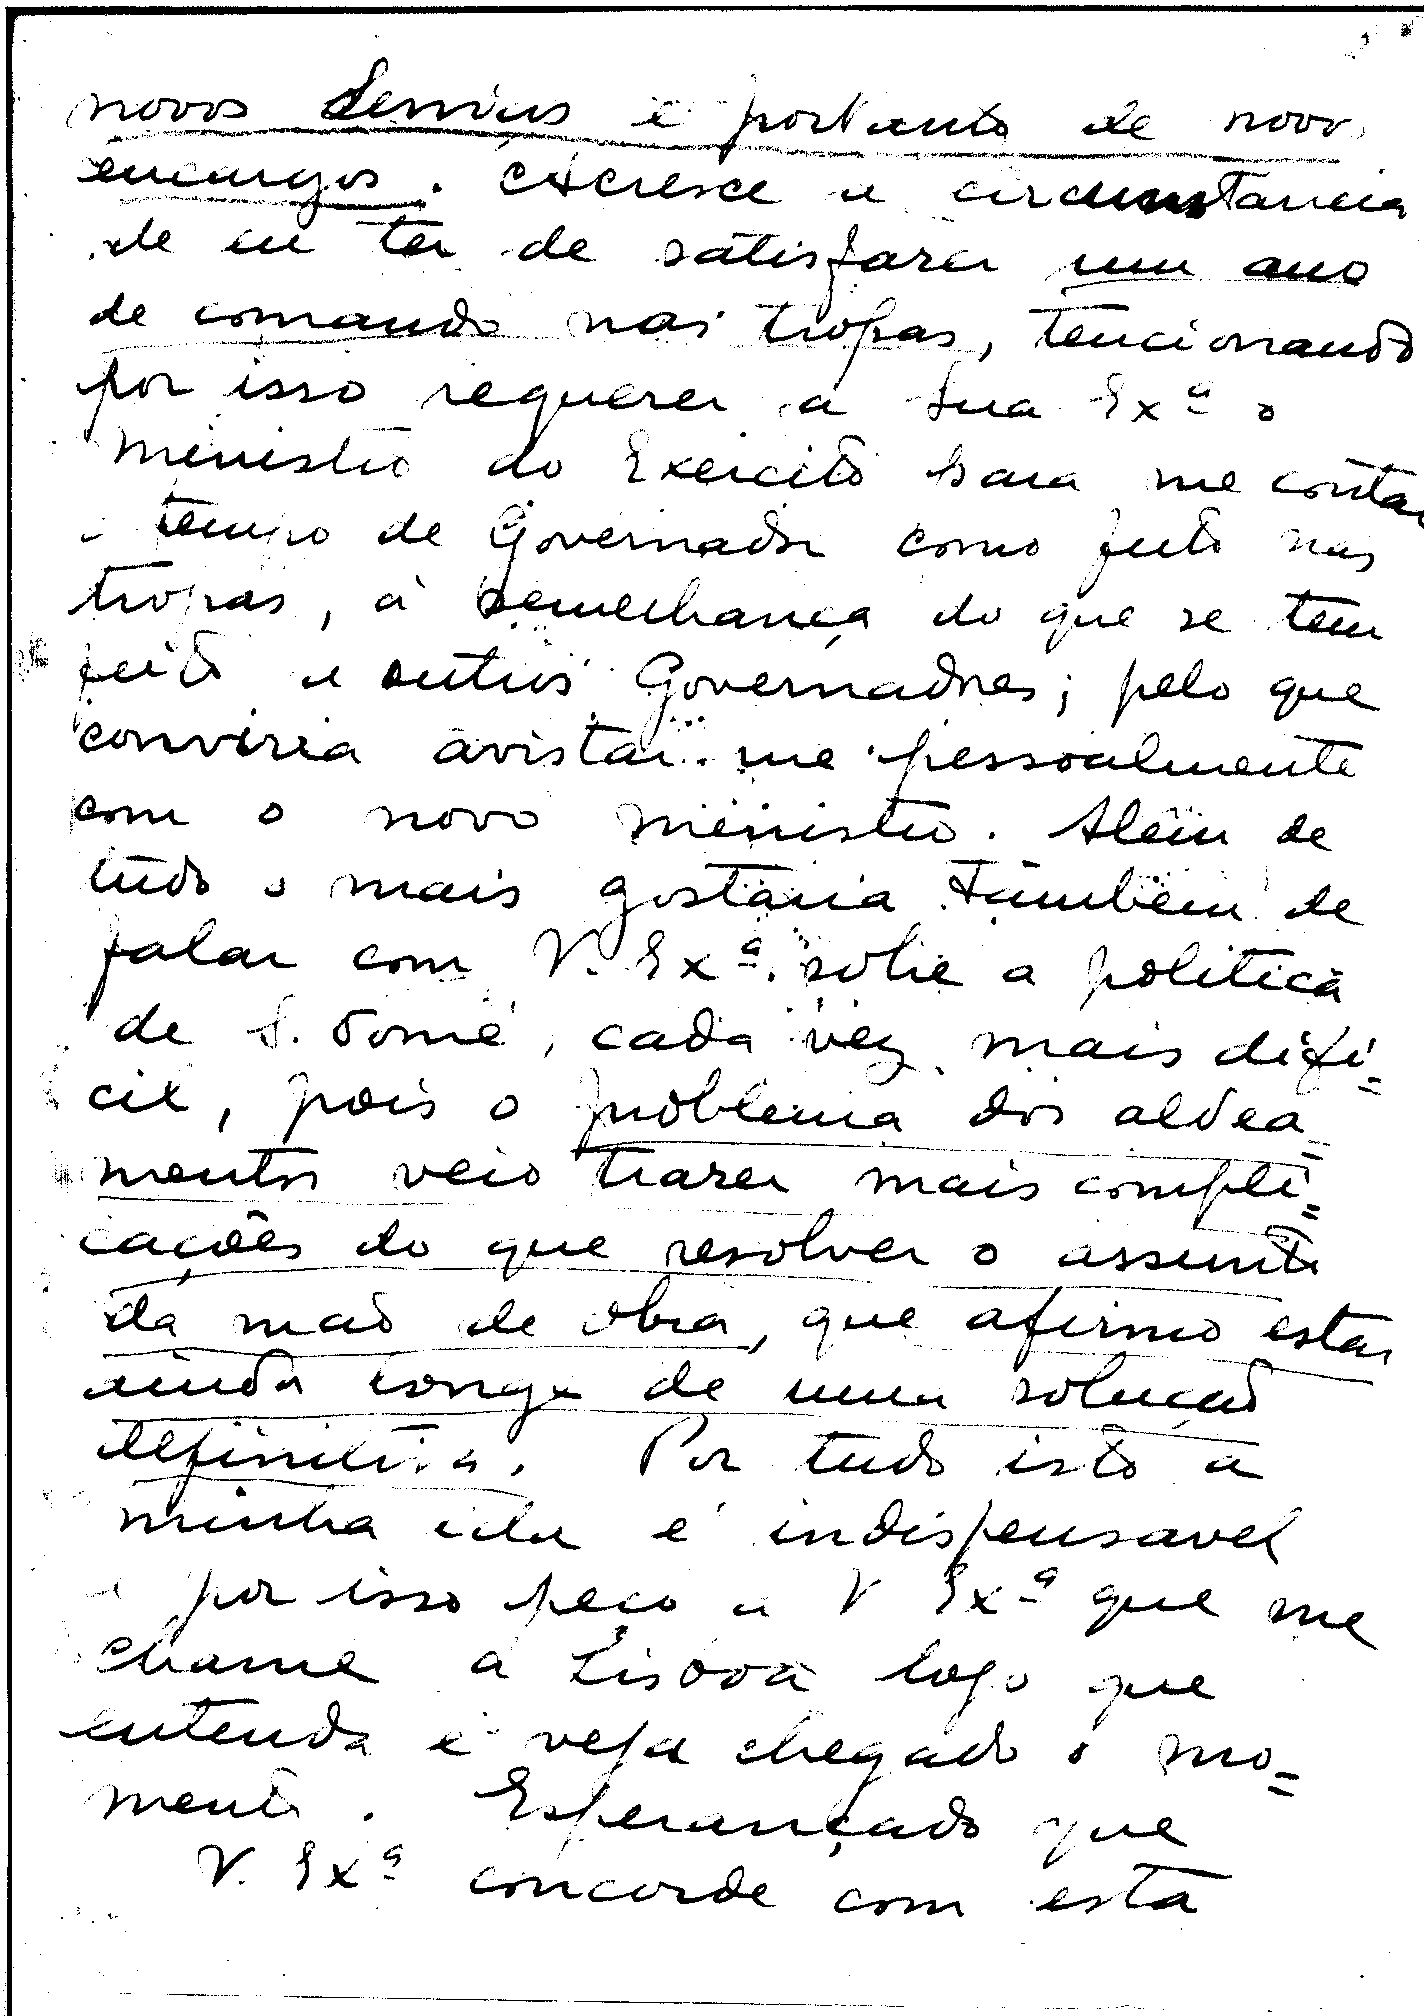 novos Serviços e portanto de novos
encargos. Acresce a circunstancia
de eu ter de satisfazer um ano
de comando nas tropas, tencionando
por isso requerer a Sua Exª o
Ministro do Exercito para me contar
o tempo de Governador como feito nas
tropas, á semelhança do que se tem
feito a outros Governadores; pelo que
conviria avistar-me pessoalmente
com o novo Ministro. Alem de
tudo o mais gostaria tambem de
falar com V. Exª. sobre a politica
de S. Tomé, cada vez mais difi=
cil, pois o problema dos aldea=
mentos veio trazer mais compli=
cações do que resolver o assunto
da mão de obra, que afirmo estar
ainda longe de uma solução
definitiva. Por tudo isto a
minha ida é indispensavel
e por isso peço a V Exª que me
chame a Lisboa logo que
entenda e veja chegado o mo=
mento. Esperançado que
V. Exª concorde com esta